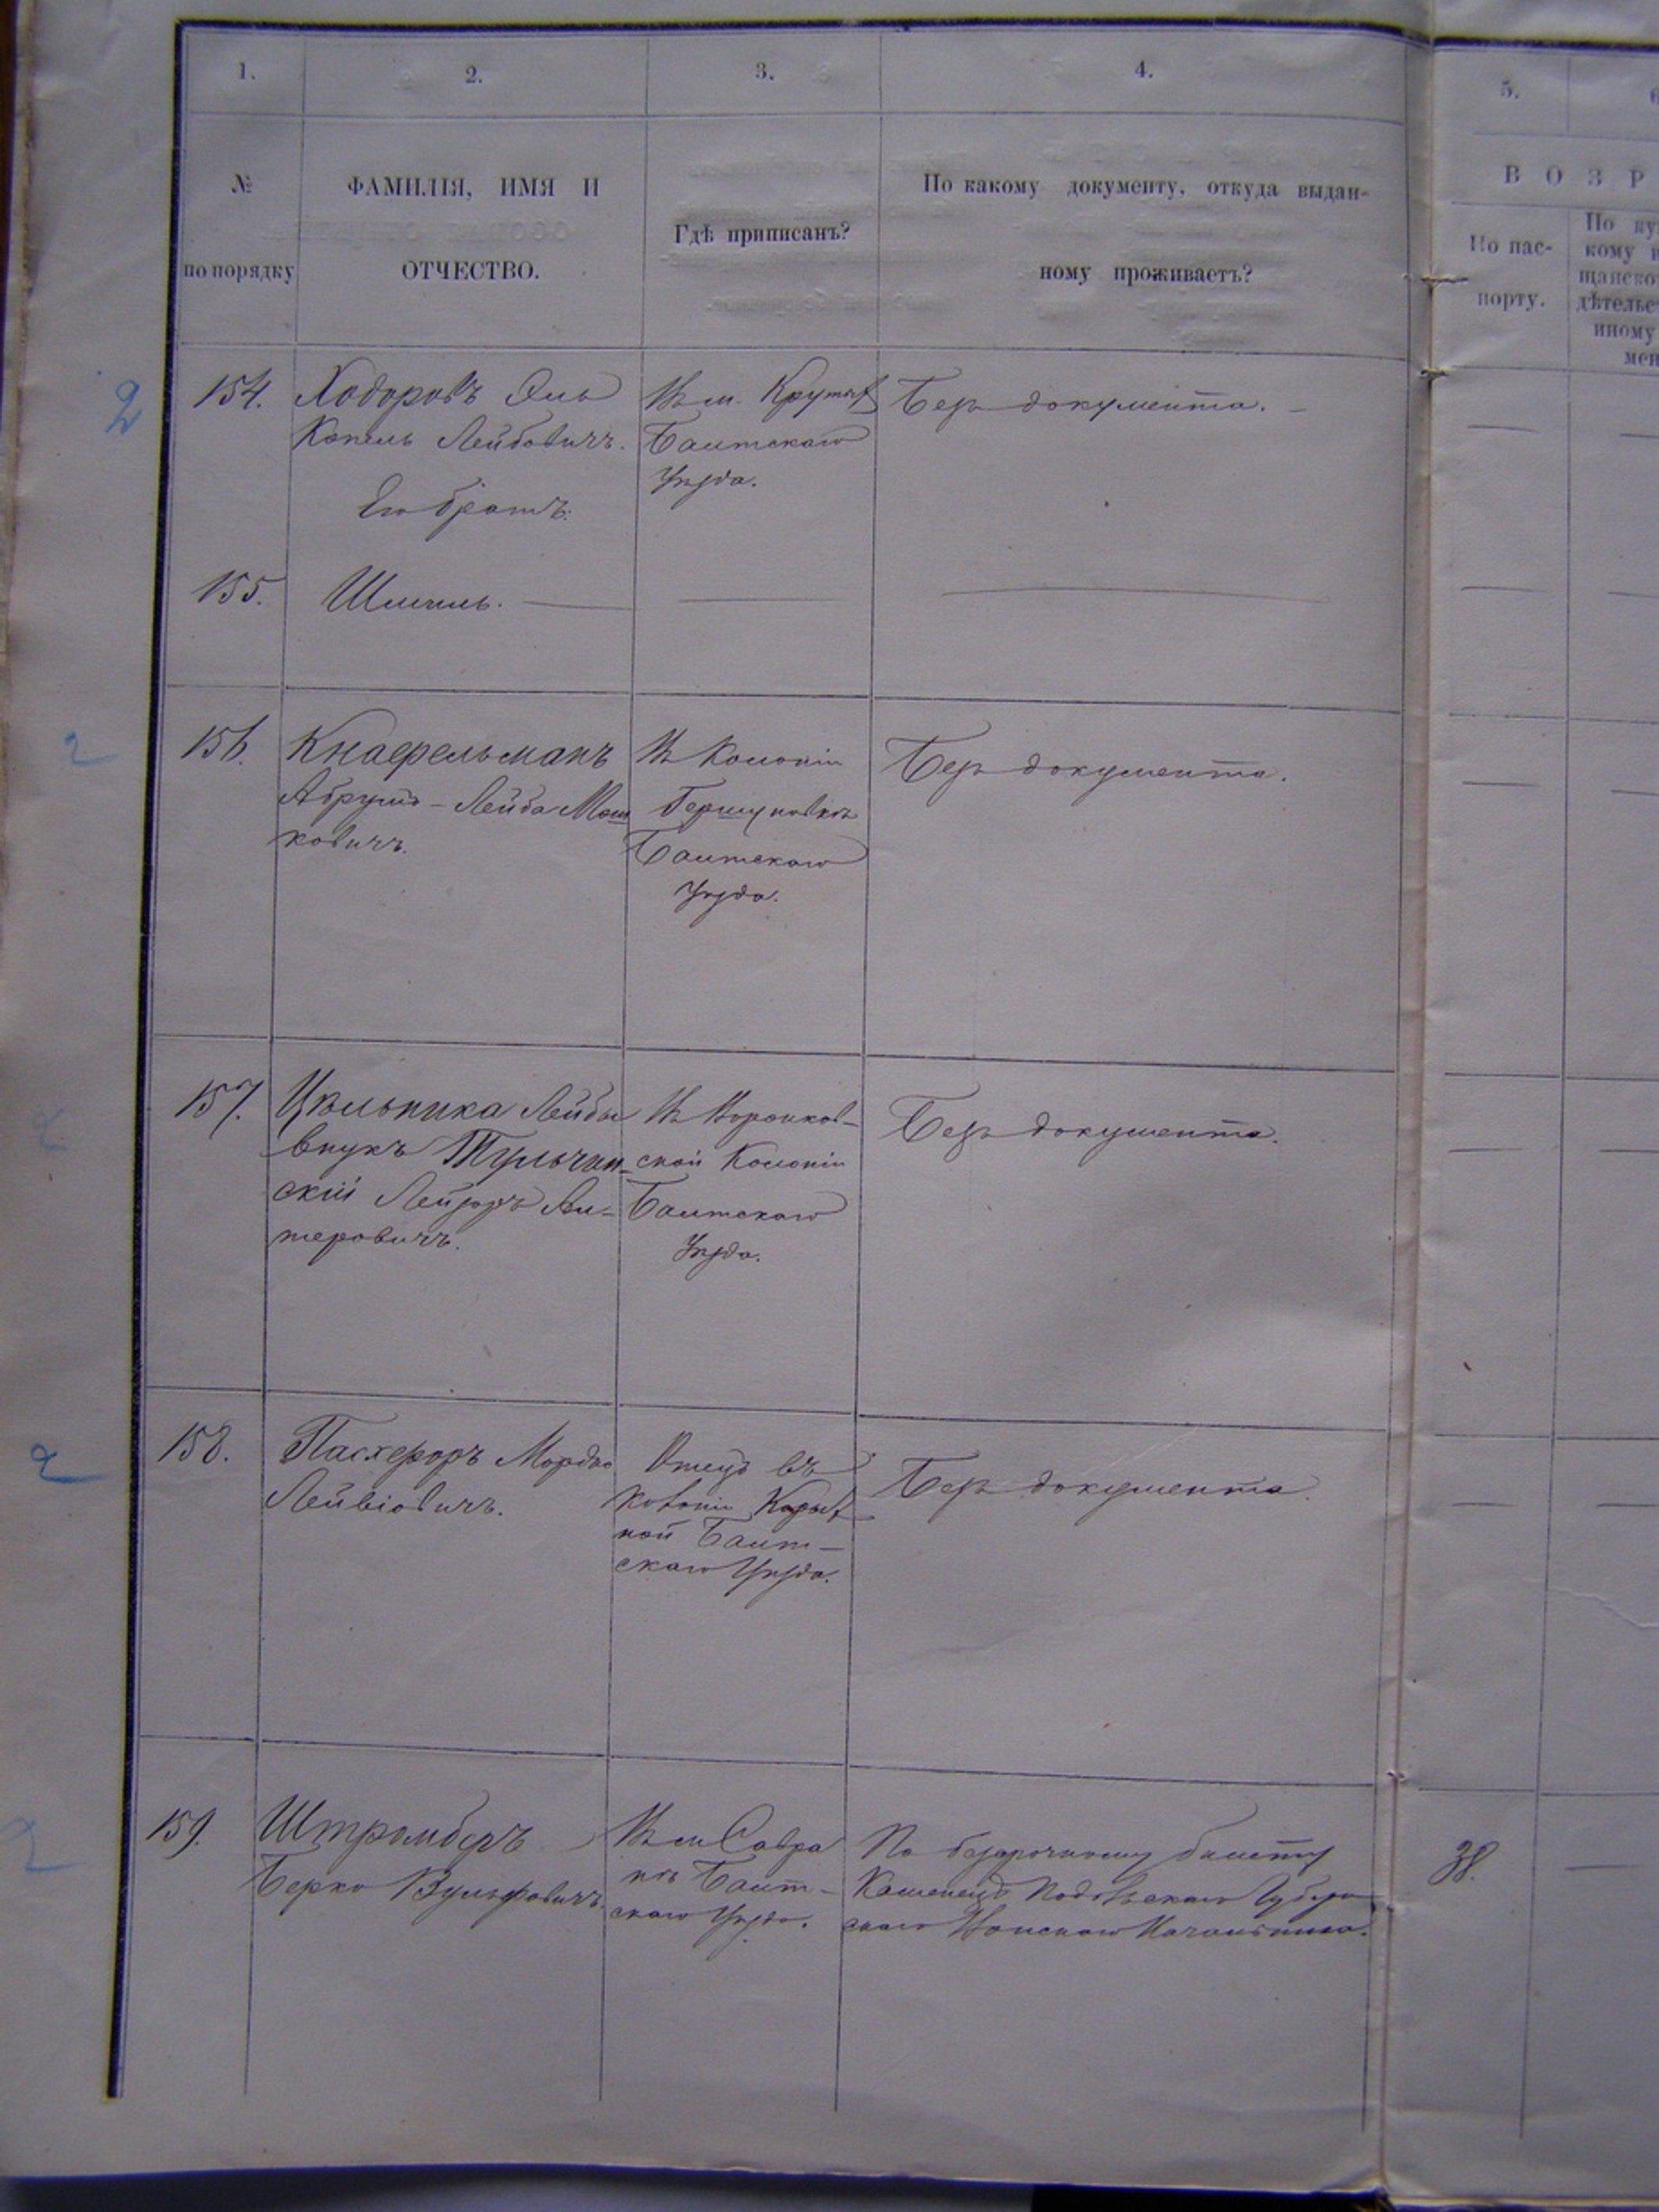 1.
2.
3.
4.
5.
№
по порядку
ФАМИЛІЯ, ИМЯ И
ОТЧЕСТВО.
Гдѣ приписанъ?
По какому документу, откуда выдан-
ному проживаетъ?
ВОЗР
По пас-
порту.
По ку
кому
щанско
дѣтельс
иному
мен
2
154.
Ходоровъ
Копель Лейбовичъ.
Его братъ:
Въ м. Крутыхъ
Балтскаго
Уѣзда.
Безъ документа. —
155.
Шмиль. —
2
156.
Кнафельманъ
Абрумъ-Лейба Мош
ковичъ.
Въ Колоніи
Гершуновкѣ
Балтскаго
Уѣзда.
Безъ документа.
2
157.
Цѣльника Лейбы
внукъ Тульчин-
скій Лейзоръ
теровичъ.
Въ
ской Колоніи
Балтскаго
Уѣзда.
Безъ документа.
2
158.
Мордко
Лейвіовичъ.
Отецъ въ
Колоніи
ной Балт-
скаго Уѣзда.
Безъ документа.
2
159.
Штромберъ
Берко Вульфовичъ.
Въ м. Савра
нѣ Балт-
скаго Уѣзда.
По безсрочному билету
Каменецъ Подольскаго Губерн
скаго Воинскаго Начальника.
38.